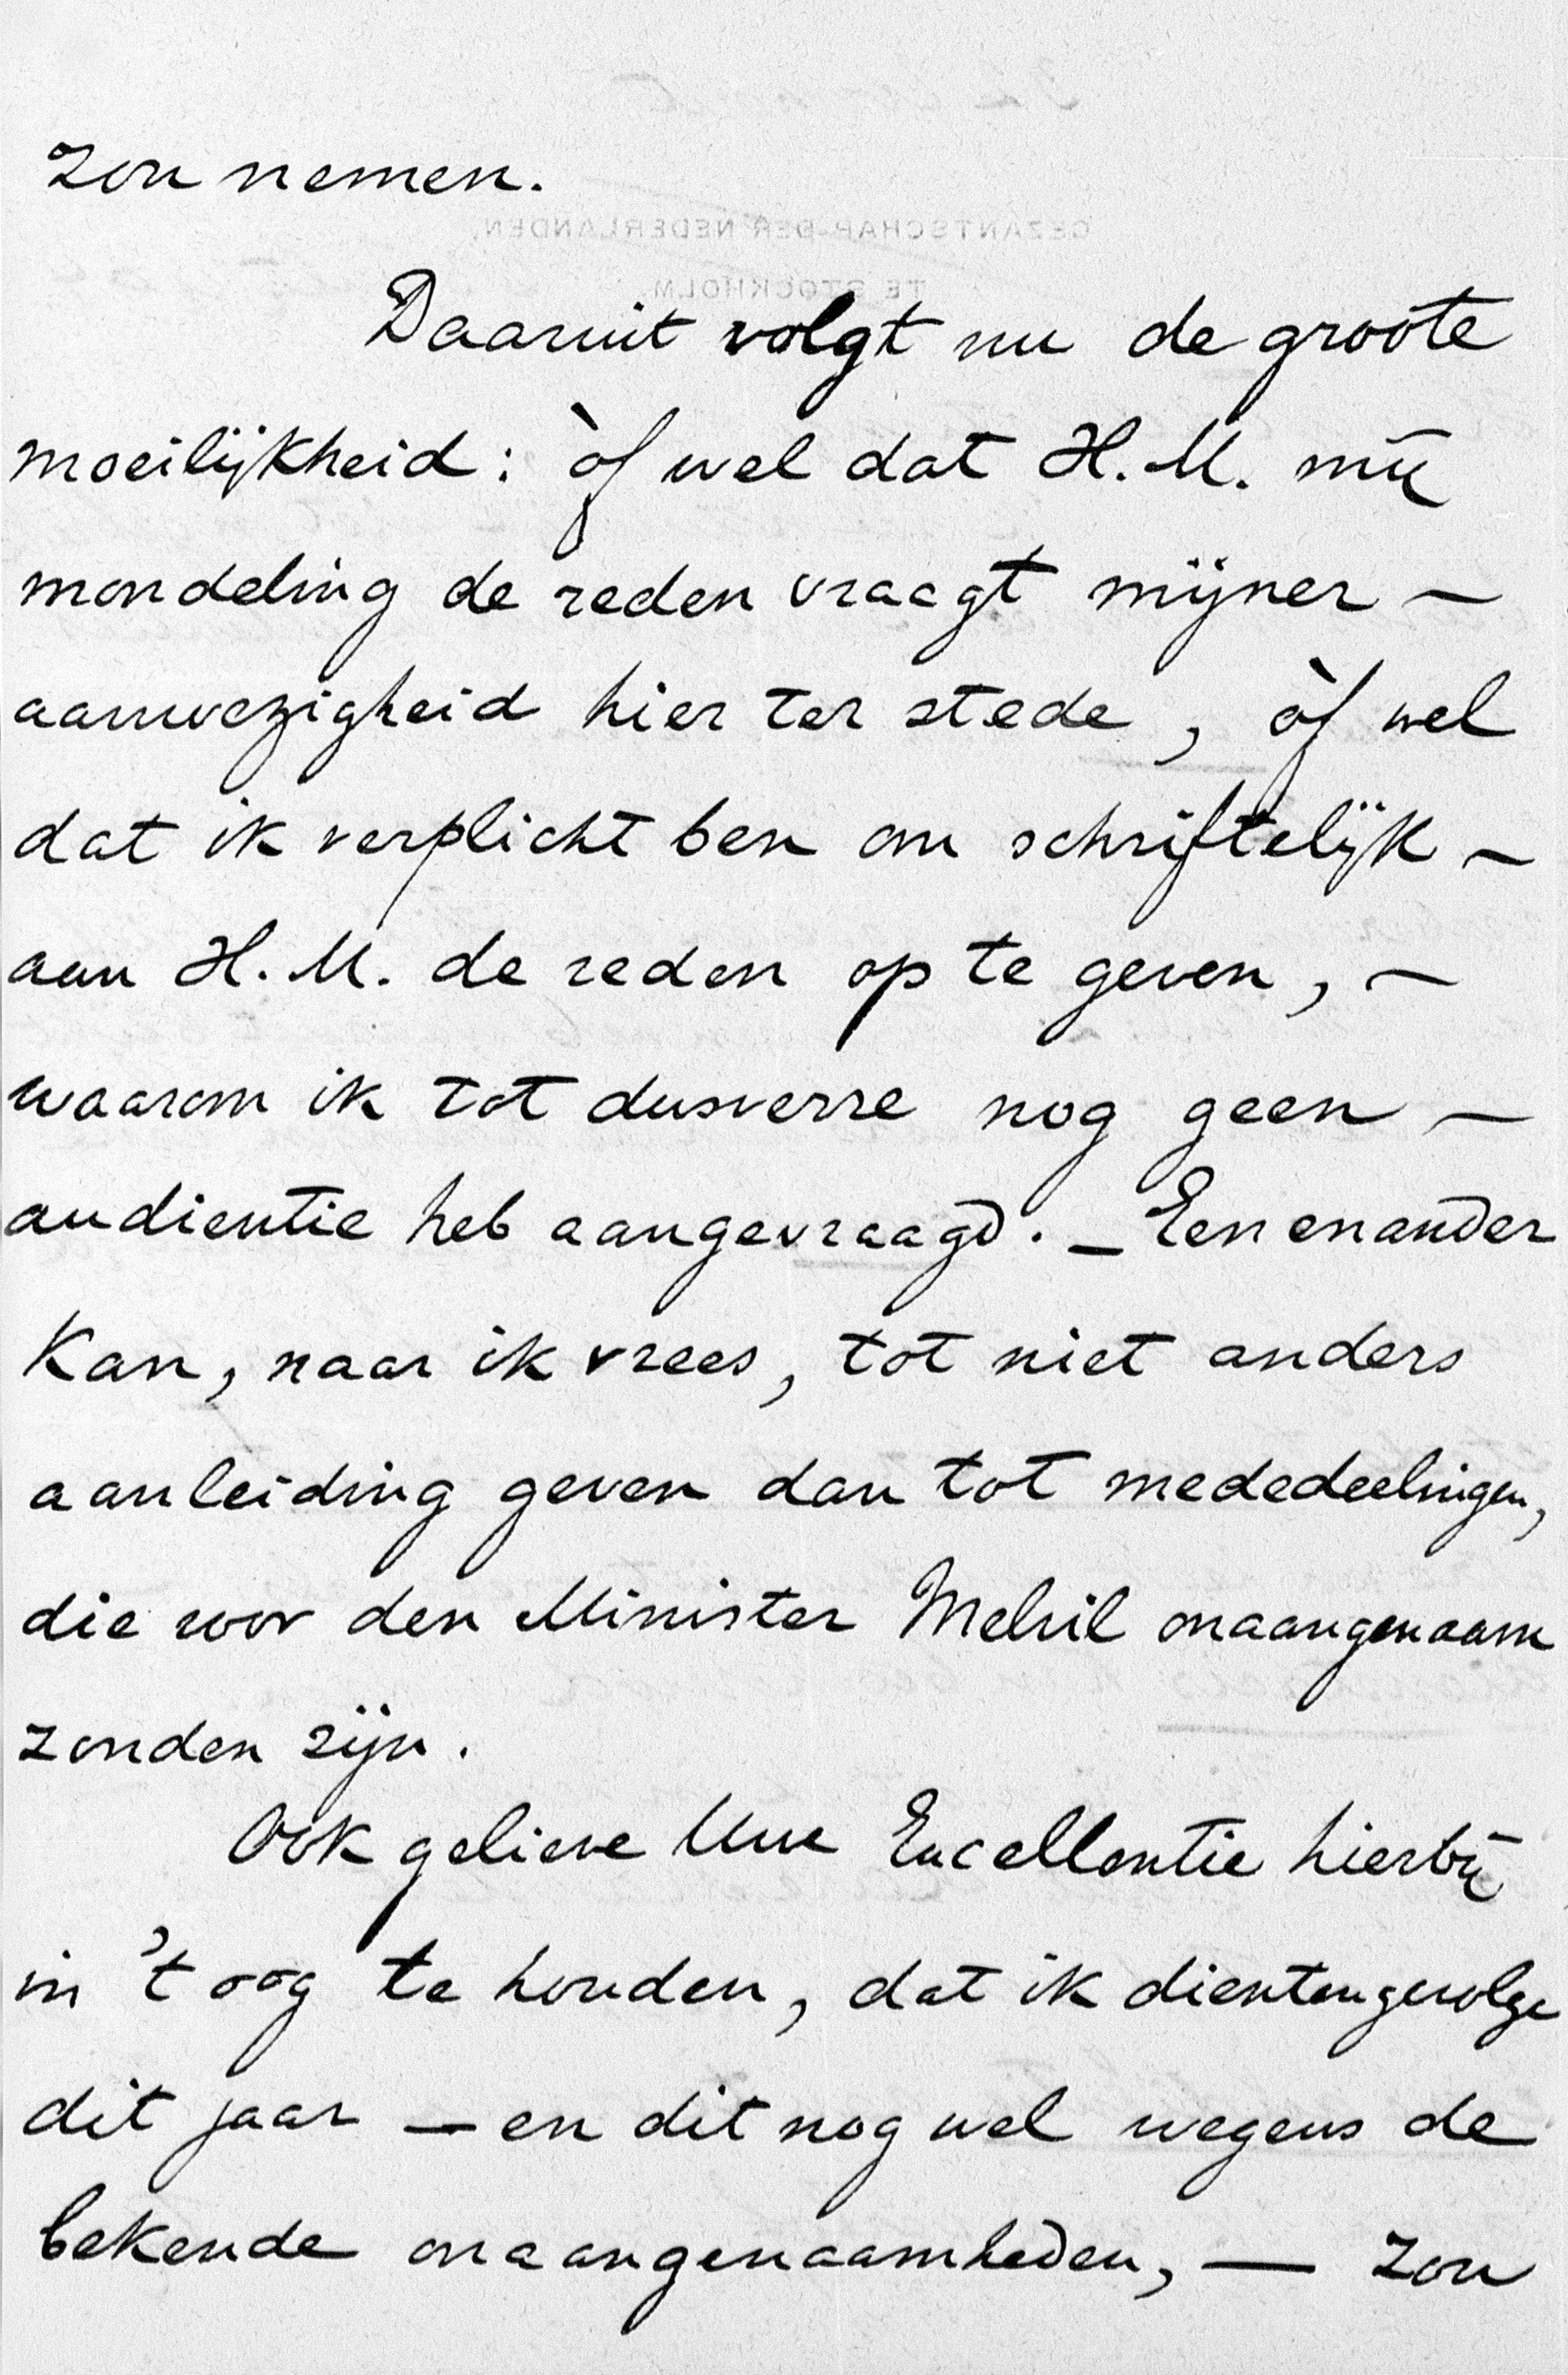 zou nemen.
GEZANTSCHAP DER NEDERLANDEN,
TE STOCKHOLM.
Daaruit volgt nu de groote
moeilijkheid: òf wel dat H.M. mij
mondeling de reden vraagt mijner —
aanwezigheid hier ter stede, òf wel
dat ik verplicht ben om schriftelijk —
aan H.M. de reden op te geven, —
waarom ik tot dusverre nog geen —
audientie heb aangevraagd. — Een en ander
kan, naar ik vrees, tot niet anders
aanleiding geven dan tot mededeelingen,
die voor den Minister Melvil onaangenaam
zouden zijn.
Ook gelieve Uwe Excellentie hierbij
in 't oog te houden, dat ik dientengevolge
dit jaar — en dit nog wel wegens de
bekende onaangenaamheden, — zou